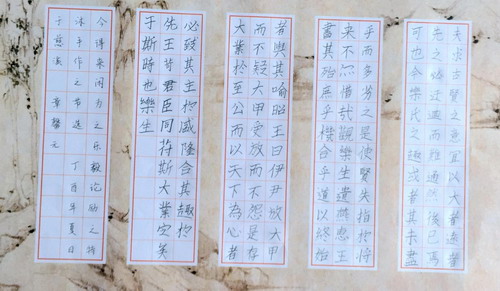 夫求古賢之意宜以大者遠者
先之必迂迴而難通然後已焉
可也今樂氏之趣或者其未盡
乎而多劣之是使賢失指於將
來不亦惜哉觀樂生遺燕惠王
書其殆庶乎機合乎道以終始
者與其喻昭王曰伊尹放大甲
而不疑大甲受放而不怨是存
大業於至公而以天下為心者
必致其主於盛隆合其趣於
先王苟君臣同符斯大業定矣
于斯時也樂生
今得来闻为之乐毅论励之特
沐手作之节选 丁酉年夏日
于慈溪 章馨元